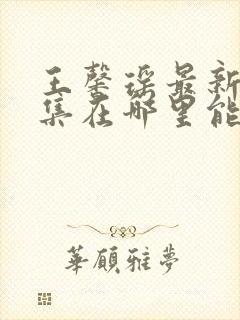 王馨瑶最新
集在哪里能
華顧雅夢